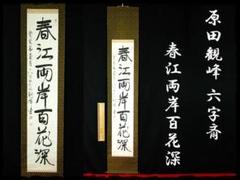 原田観峰 六字斎
春江両岸百花深
春江両岸百花深
春江両岸百花深